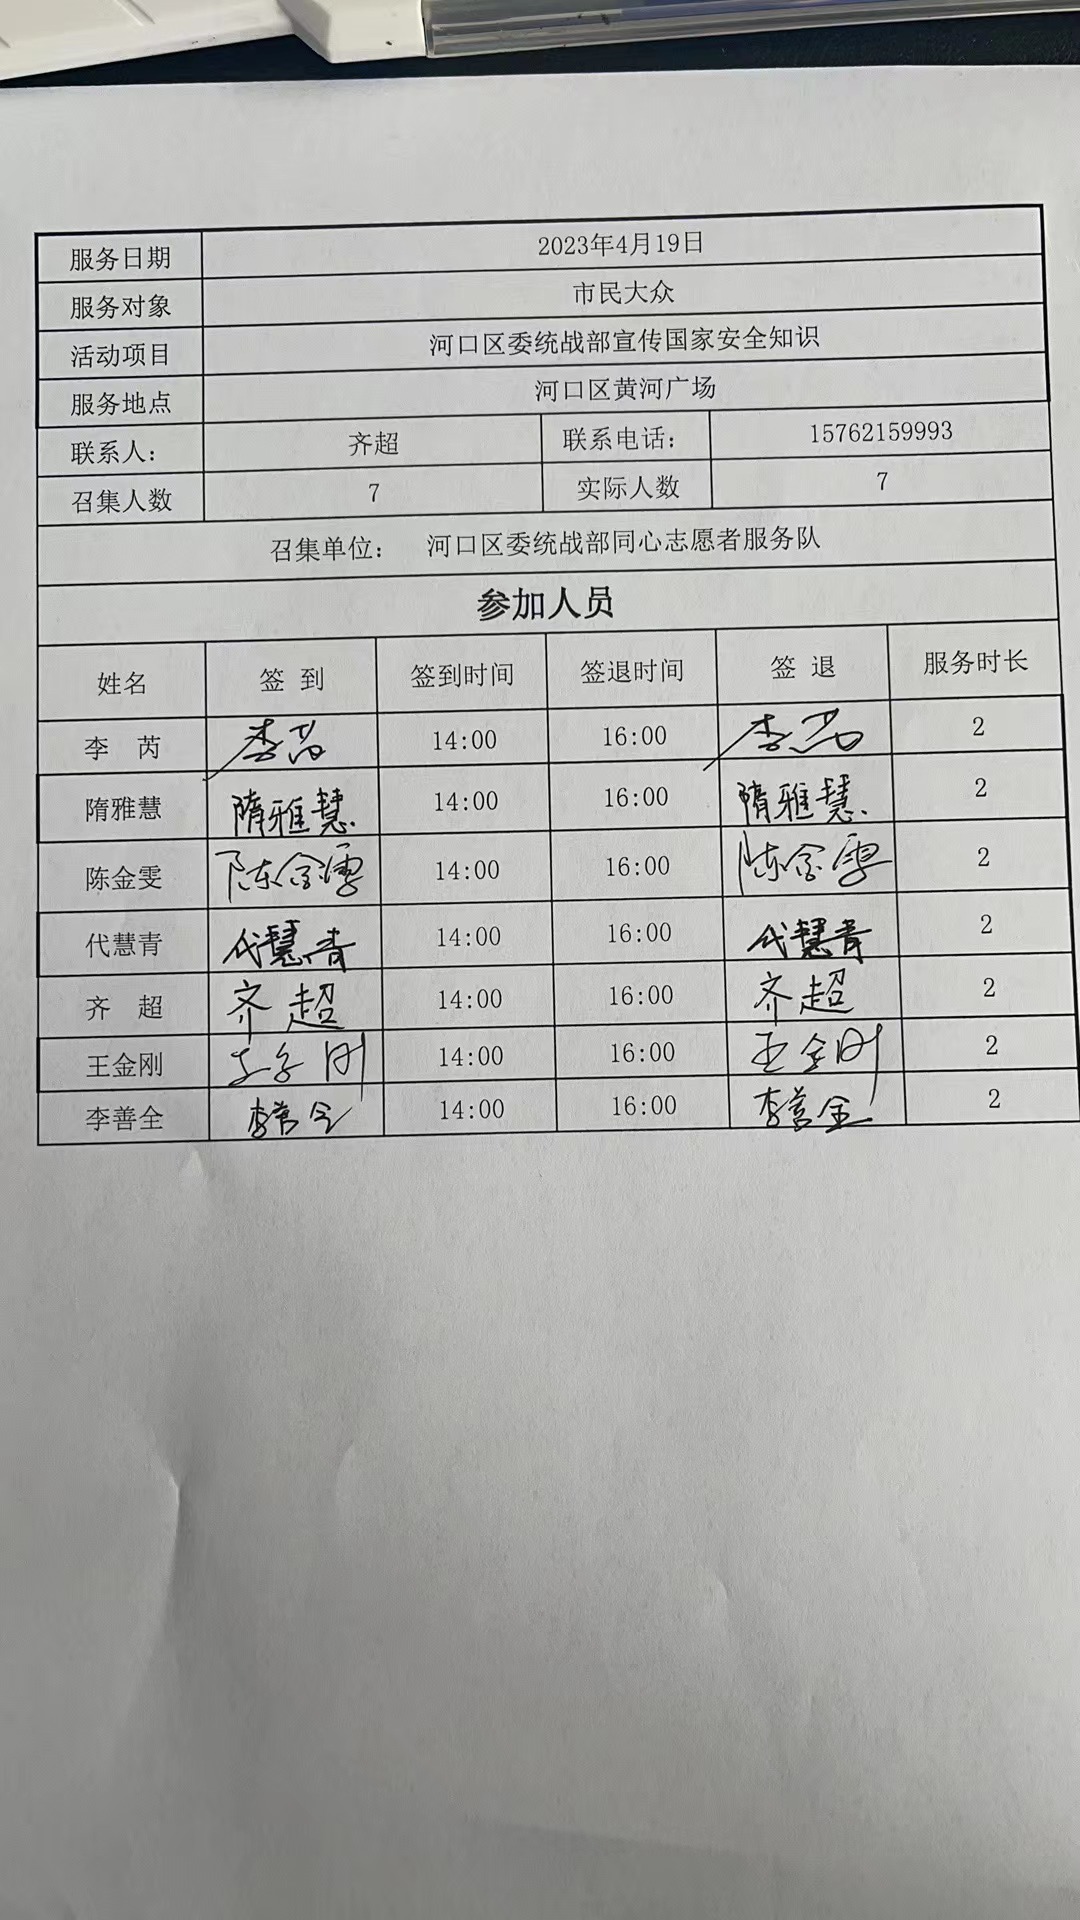 服务日期 2023年4月19日
服务对象 市民大众
活动项目 河口区委统战部宣传国家安全知识
服务地点 河口区黄河广场
联系人： 齐超 联系电话： 15762159993
召集人数 7 实际人数 7
召集单位： 河口区委统战部同心志愿者服务队
参加人员
姓名 签 到 签到时间 签退时间 签 退 服务时长
李 芮 李芮 14:00 16:00 李芮 2
隋雅慧 隋雅慧 14:00 16:00 隋雅慧 2
陈金雯 陈金雯 14:00 16:00 陈金雯 2
代慧青 代慧青 14:00 16:00 代慧青 2
齐 超 齐超 14:00 16:00 齐超 2
王金刚 王金刚 14:00 16:00 王金刚 2
李善全 李善全 14:00 16:00 李善全 2